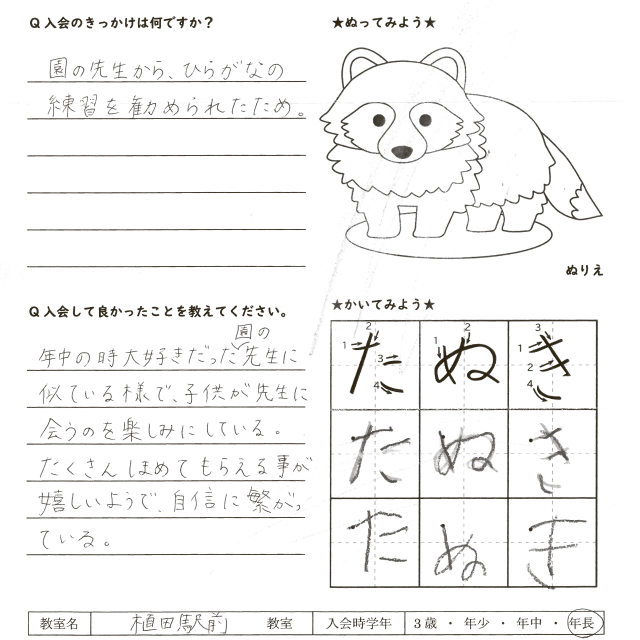 Q 入会のきっかけは何ですか?
園の先生から、ひらがなの
練習を勧められたため。
★ぬってみよう★
ぬりえ
Q 入会して良かったことを教えてください。
園の
年中の時大好きだった先生に
似ている様で、子供が先生に
会うのを楽しみにしている。
たくさんほめてもらえる事が
嬉しいようで、自信に繋がっ
ている。
★かいてみよう★
1 2 3 4 1 2 1 2 3 4
た ぬ き
た ぬ き
た ぬ き
教室名 植田駅前 教室 入会時学年 3歳 ・ 年少 ・ 年中 ・ 年長